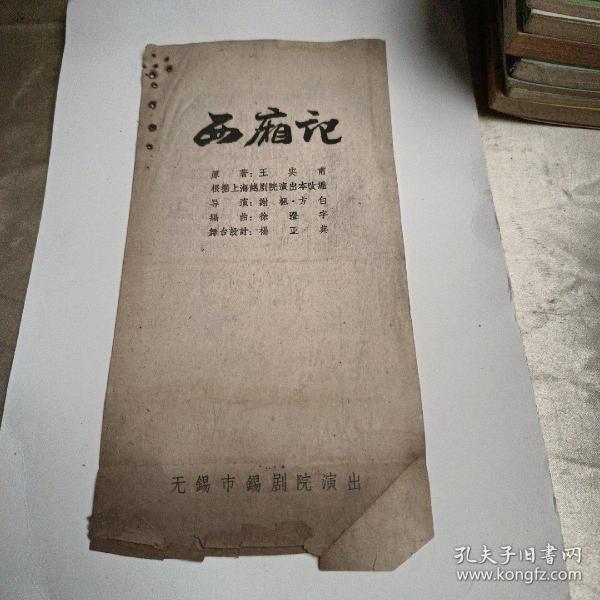 西廂記
原著：王实甫
根据上海越剧院演出本改編
导演：謝楓·方白
編曲：徐澄宇
舞台設計：楊正
无錫市錫剧院演出
孔夫子旧书网
www.kongfz.com